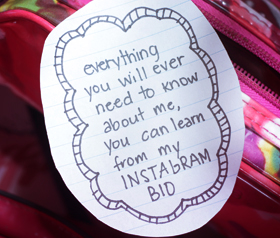 everything
you will ever
need to know
about me,
you can learn
from my
INSTAbRAM
BID